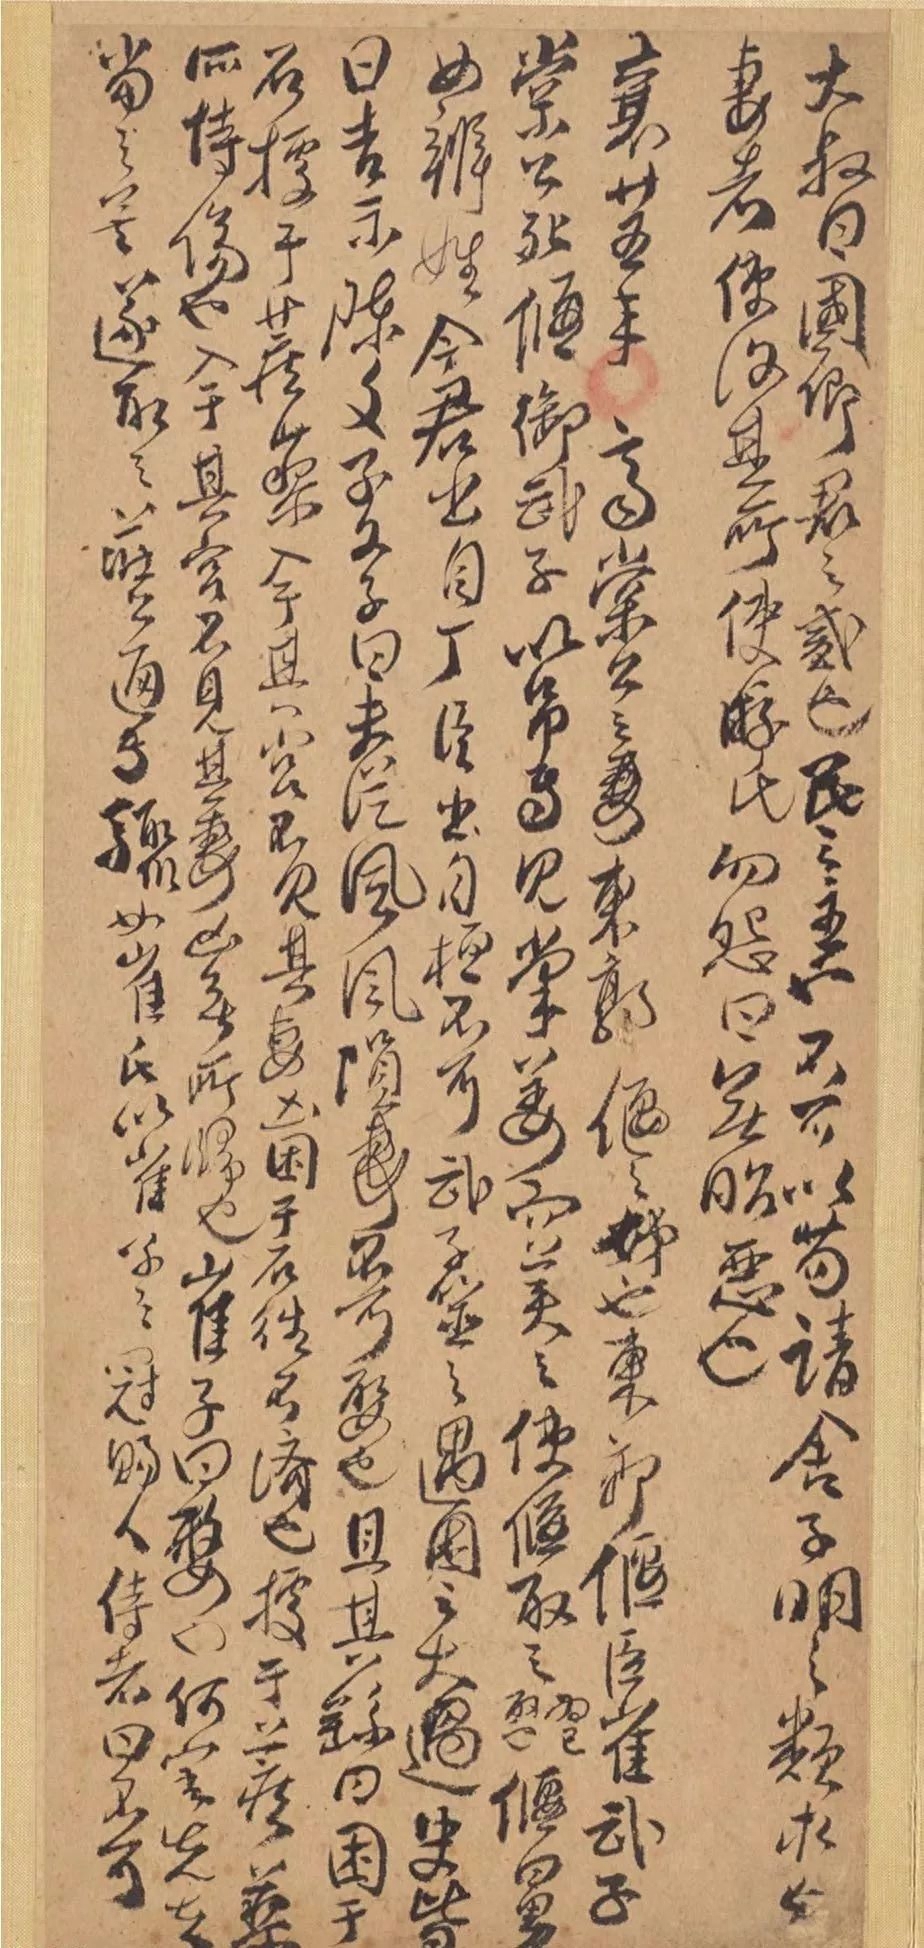 大叔曰國卿君之貳也民之主也不可以苟請舍子明之類求亡
妻者使復其所使游氏勿怨曰無昭惡也
襄廿五年齊棠公之妻東郭偃之姊也東郭偃臣崔武子
棠公死偃御武子以吊焉見棠姜而美之使偃取之偃曰男
女辨姓今君出自丁臣出自桓不可武子筮之遇困之大過史皆
曰吉示陳文子文子曰夫從風風隕妻不可娶也且其繇曰困于
石據于蒺蔾入于其宮不見其妻凶困于石往不濟也據于蒺蔾
所恃傷也入于其宮不見其妻凶無所歸也崔子曰嫠也何害先夫
當之矣遂取之莊公通焉驟如崔氏以崔子之冠賜人侍者曰不可